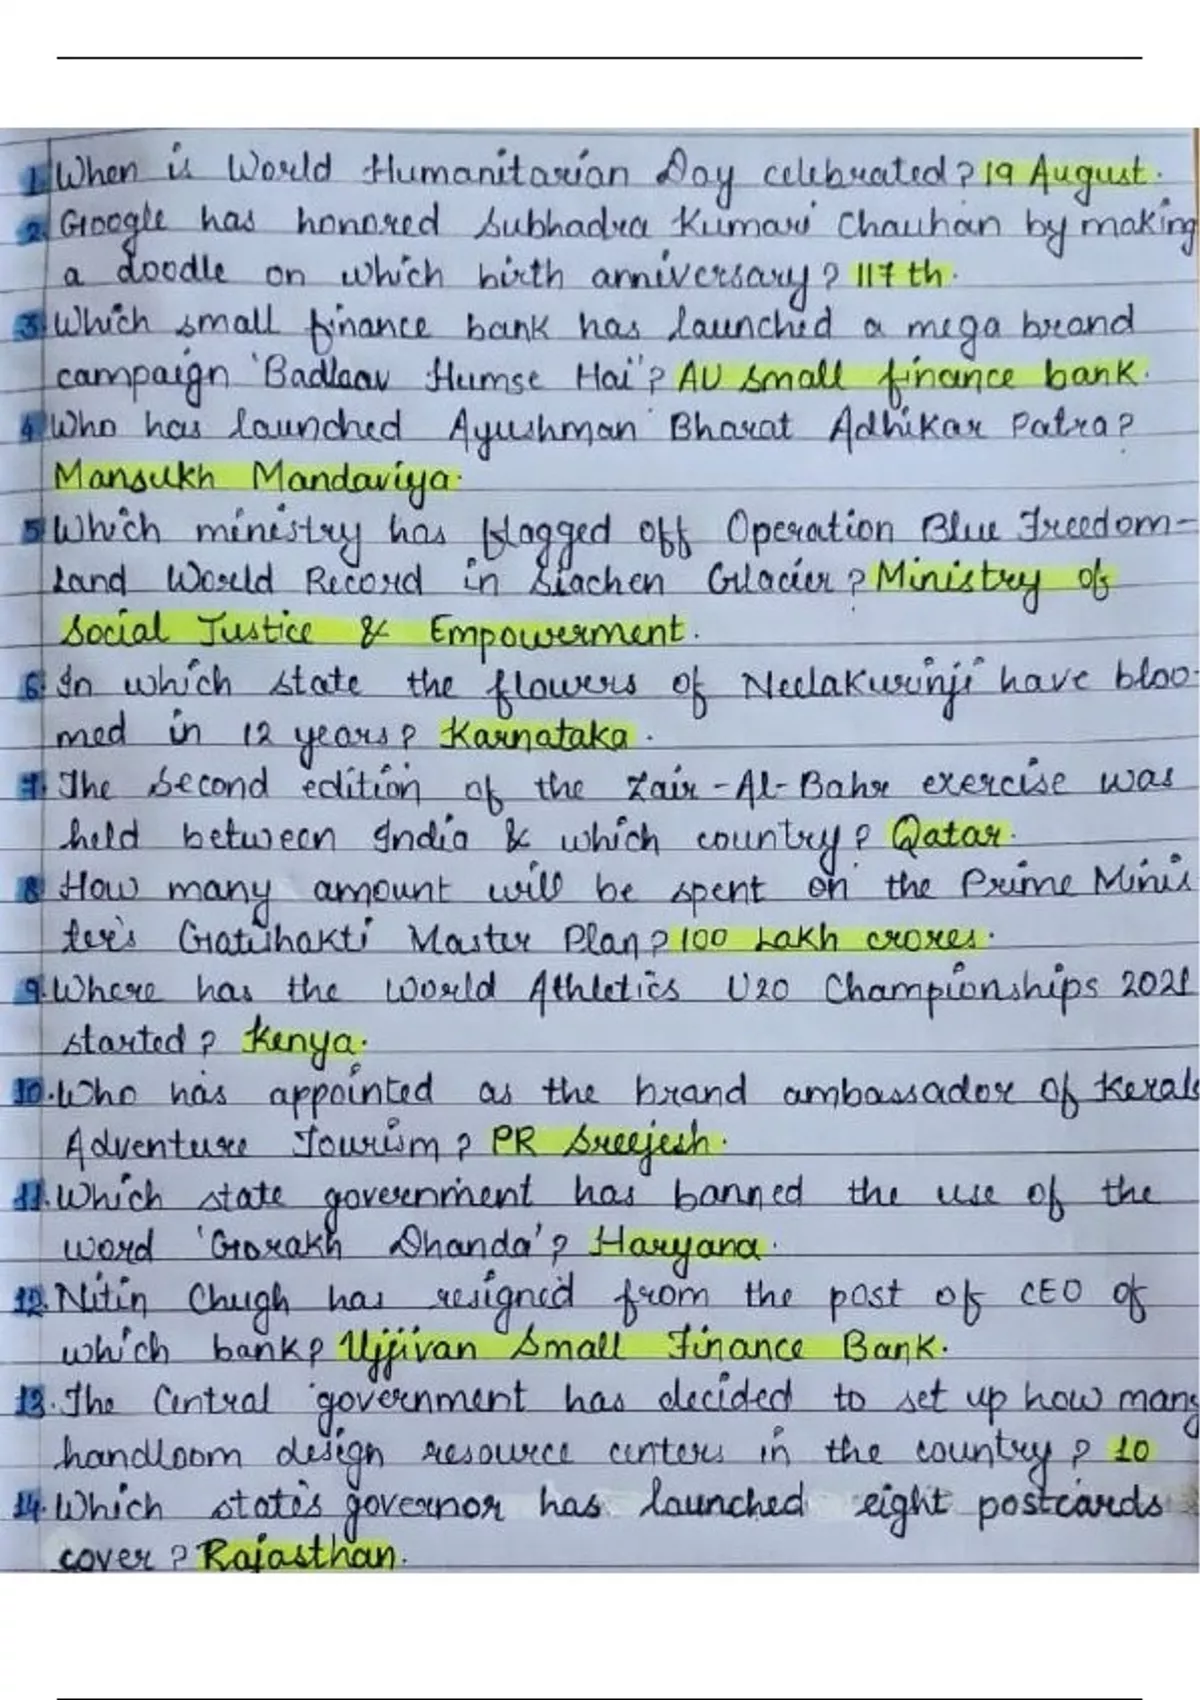 1. When is World Humanitarian Day celebrated? 19 August.
2. Google has honored Subhadra Kumari Chauhan by making
a doodle on which birth anniversary? 117th.
3. Which small finance bank has launched a mega brand
campaign 'Badlaav Humse Hai'? AU small finance bank.
4. Who has launched Ayushman Bharat Adhikar Patra?
Mansukh Mandaviya.
5. Which ministry has flagged off Operation Blue Freedom-
Land World Record in Siachen Glacier? Ministry of
Social Justice & Empowerment.
6. In which state the flowers of Neelakurinji have bloo-
med in 12 years? Karnataka.
7. The second edition of the Zair-Al-Bahr exercise was
held between India & which country? Qatar.
8. How many amount will be spent on the Prime Minis
ter's Gatishakti Master Plan? 100 Lakh crores.
9. Where has the World Athletics U20 Championships 2021
started? Kenya.
10. Who has appointed as the brand ambassador of Kerala
Adventure Tourism? PR Sreejesh.
11. Which state government has banned the use of the
word 'Gorakh Dhanda'? Haryana.
12. Nitin Chugh has resigned from the post of CEO of
which bank? Ujjivan Small Finance Bank.
13. The Central government has decided to set up how many
handloom design resource centers in the country? 10
14. Which state's governor has launched eight postcards
cover? Rajasthan.